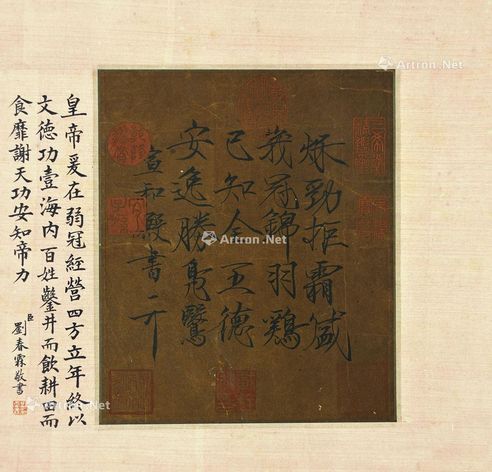 Artron.Net
秋勁拒霜盛
峩冠錦羽鷄
已知全五德
安逸勝鳧鷖
宣和殿書
皇帝爰在弱冠經營四方立年終以
文德功壹海內百姓鑿井而飲耕田而
食靡謝天功安知帝力
臣劉春霖敬書
Artron.Net
Artron.Net